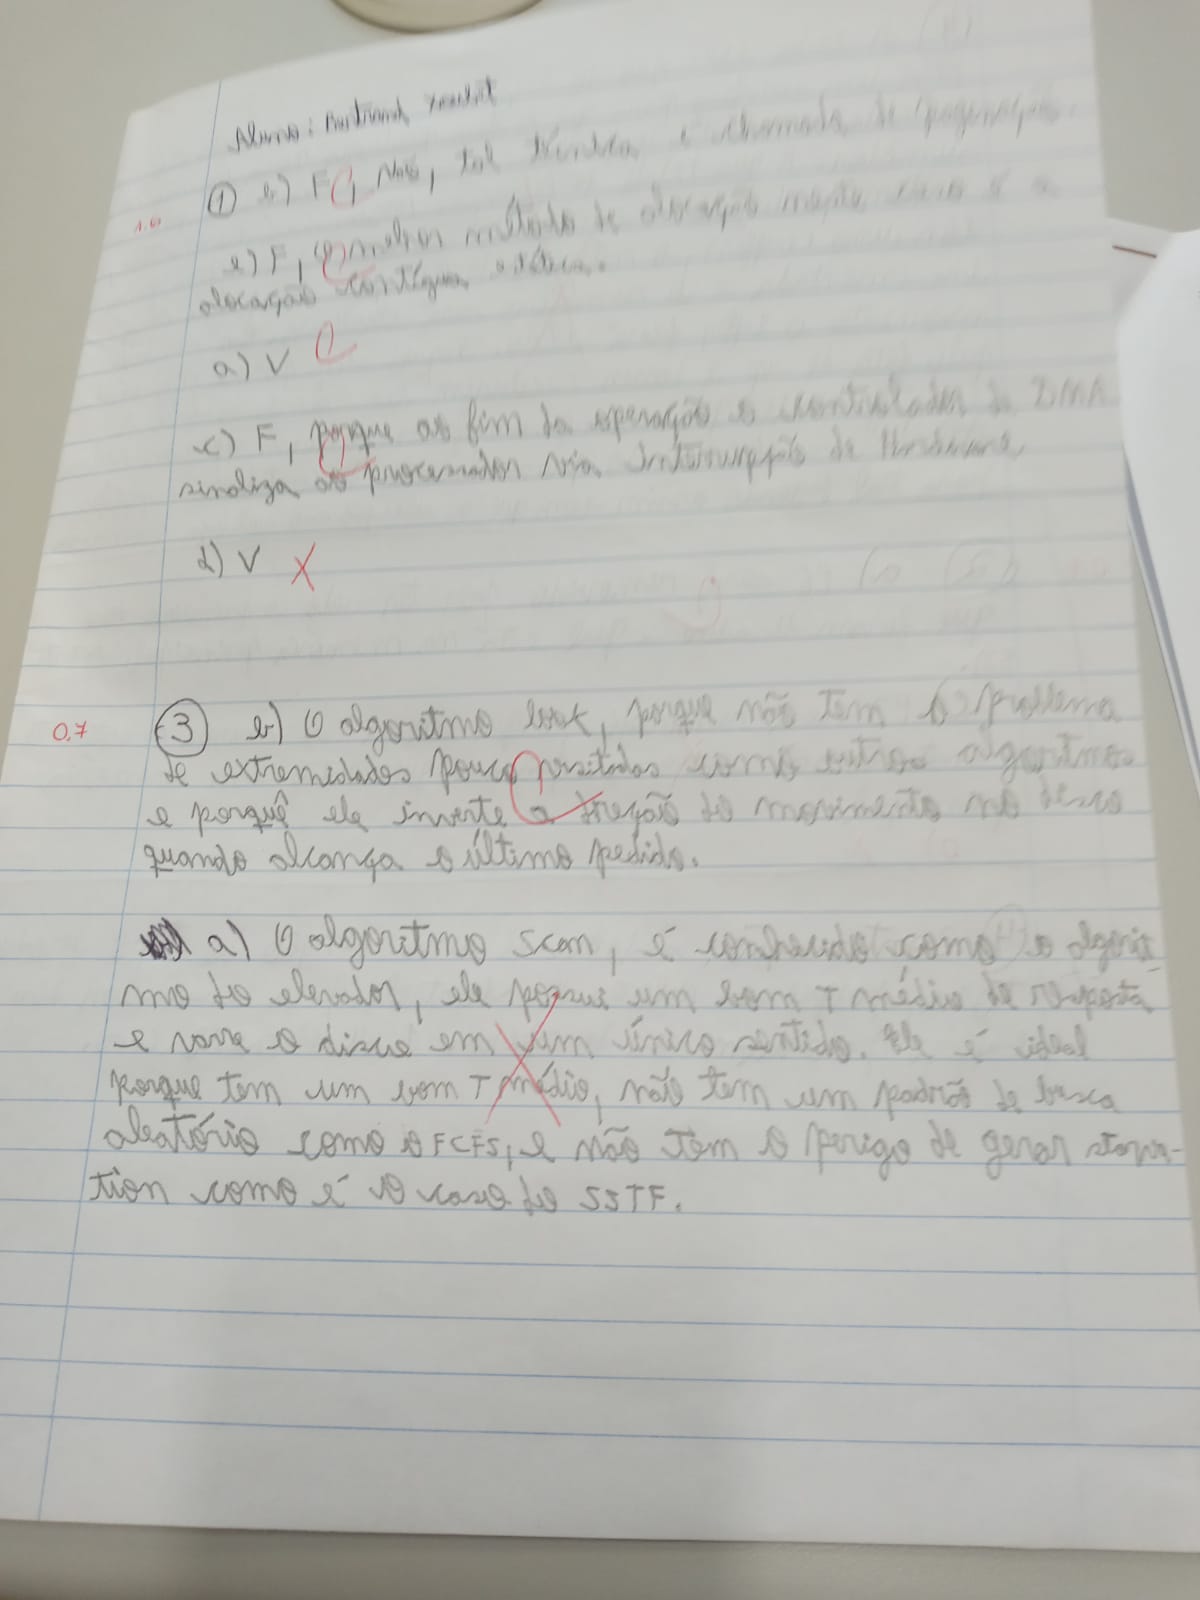 Aluno:
1.0 ① b) F, Não, tal técnica é chamada de paginação.
e) F, o melhor método de alocação neste caso é a
alocação contígua
a) V
c) F, porque ao fim da operação o controlador de DMA
sinaliza ao processador via interrupção de Hardware
d) V
0,7 ③ b) O algoritmo look, porque não tem o problema
de extremidades pouco visitadas como outros algoritmos
e porquê ele inverte a direção do movimento no disco
quando alcança o último pedido.
a) O algoritmo scan, é conhecido como o algorit-
mo do elevador, ele possui um bom T médio de resposta
e varre o disco em um único sentido. Ele é ideal
porque tem um bom T médio, não tem um padrão de busca
aleatório como o FCFS, e não tem o perigo de gerar starva-
tion como é o caso do SSTF.